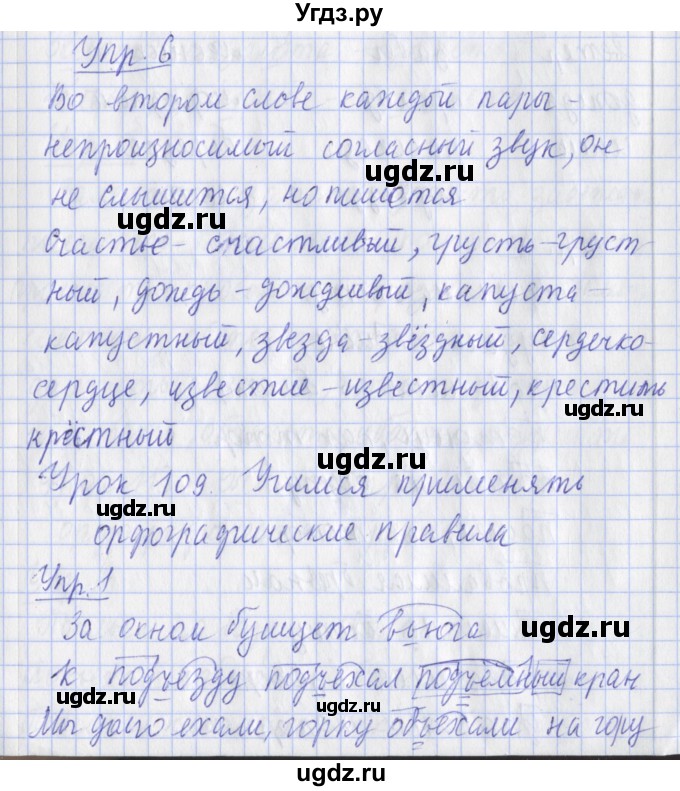 Угдз.ру
Упр. 6
Во втором слове каждой пары -
непроизносимый согласный звук, он
не слышится, но пишется
ugdz.ru ugdz.ru
Счастье - счастливый, грусть - груст-
ный, дождь - дождливый, капуста -
ugdz.ru
капустный, звезда - звёздный, сердечко -
сердце, известие - известный, крестить
ugdz.ru
крёстный
ugdz.ru
Урок 109. Учимся применять
ugdz.ru
орфографические правила
Упр. 1
За окном бушует вьюга
ugdz.ru
К подъезду подъехал подъёмный кран
Мы долго ехали, горку объехали на гору
ugdz.ru
ugdz.ru